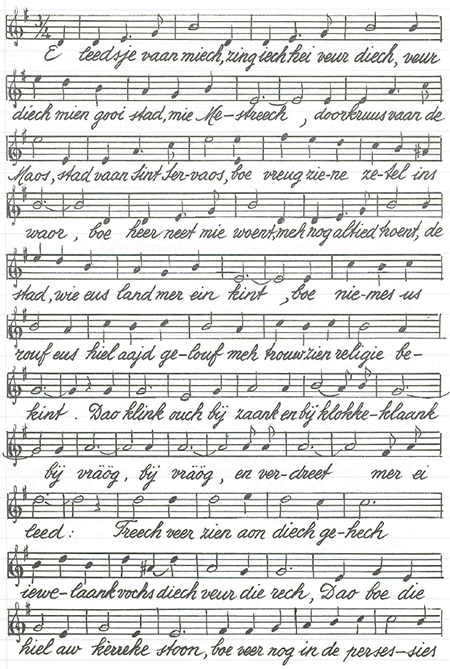 E leedsje vaan miech, zing iech hei veur diech, veur
diech mien gooi stad, mie Me-streech, doorkruus vaan de
Maos, stad vaan Sint Servaos, boe vreug zie-ne ze-tel ins
waor, boe heer neet mie woent, meh nog altied troent, de
stad, wie eus land mer ein kint, boe nie-mes us
rouf eus hiel aajd ge-louf meh trouw zien religie be-
kint. Dao klink ouch bij zaank en bij klokke-klaank
bij vräög, bij vräög, en ver-dreet mer ei
leed: Treech veer zien aon diech ge-hech
iewe-laank vochs diech veur die rech, Dao boe die
hiel aw kerreke stoon, boe veer nog in de perses-sies